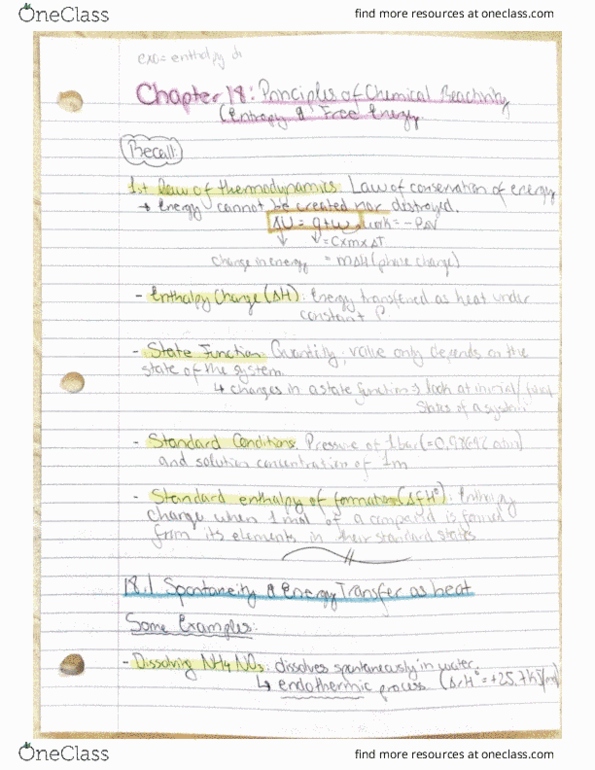 OneClass
find more resources at oneclass.com
exo = enthalpy
Chapter 18: Principles of Chemical Reactivity
(Entropy & Free Energy
Recall:
1st Law of thermodynamics: Law of conservation of energy
→ Energy cannot be created nor destroyed.
ΔU = q+w, work = -PΔV
↓ ↓ = C×m×ΔT
change in energy = mΔH (phase change)
- Enthalpy Change (ΔH): Energy transferred as heat under
constant P
- State Function: Quantity; value only depends on the
state of the system.
↳ changes in a state function → look at initial/final
states of a system
- Standard Conditions: Pressure of 1bar (= atm)
and solution concentration of 1m
- Standard enthalpy of formation (ΔfH°): Enthalpy
change when 1 mol of a compound is formed
from its elements in their standard states
18.1 Spontaneity & Energy Transfer as heat
Some Examples:
- Dissolving NH4NO3: dissolves spontaneously in water.
↳ endothermic process (ΔrH° = +25.7 kJ/mol)
OneClass
find more resources at oneclass.com